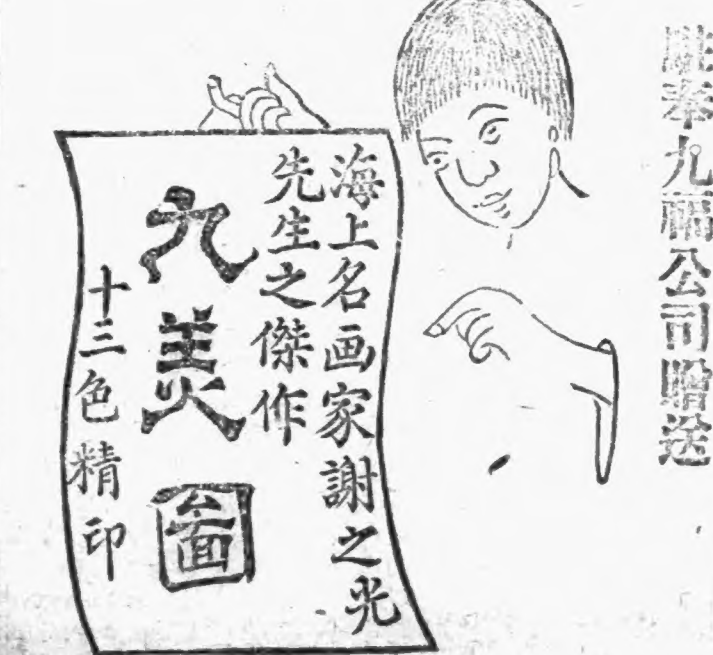 駐奉九福公司贈送
海上名画家謝之光
先生之傑作
九美圖
十三色精印